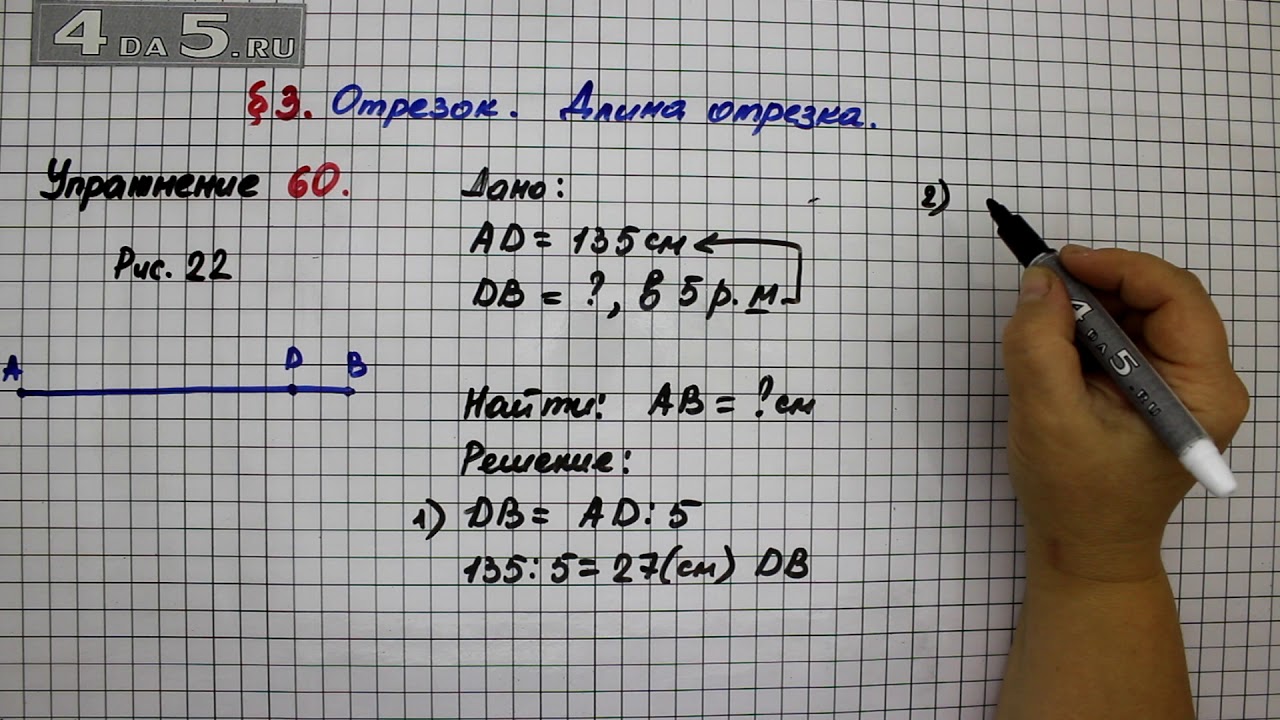 4DA5.RU
§3. Отрезок. Длина отрезка.
Упражнение 60.
Рис. 22
A D B
Дано:
AD = 135 см
DB = ?, в 5 р. м.
Найти: AB = ? см
Решение:
1) DB = AD : 5
135 : 5 = 27 (см) DB
2)
4DA5.RU